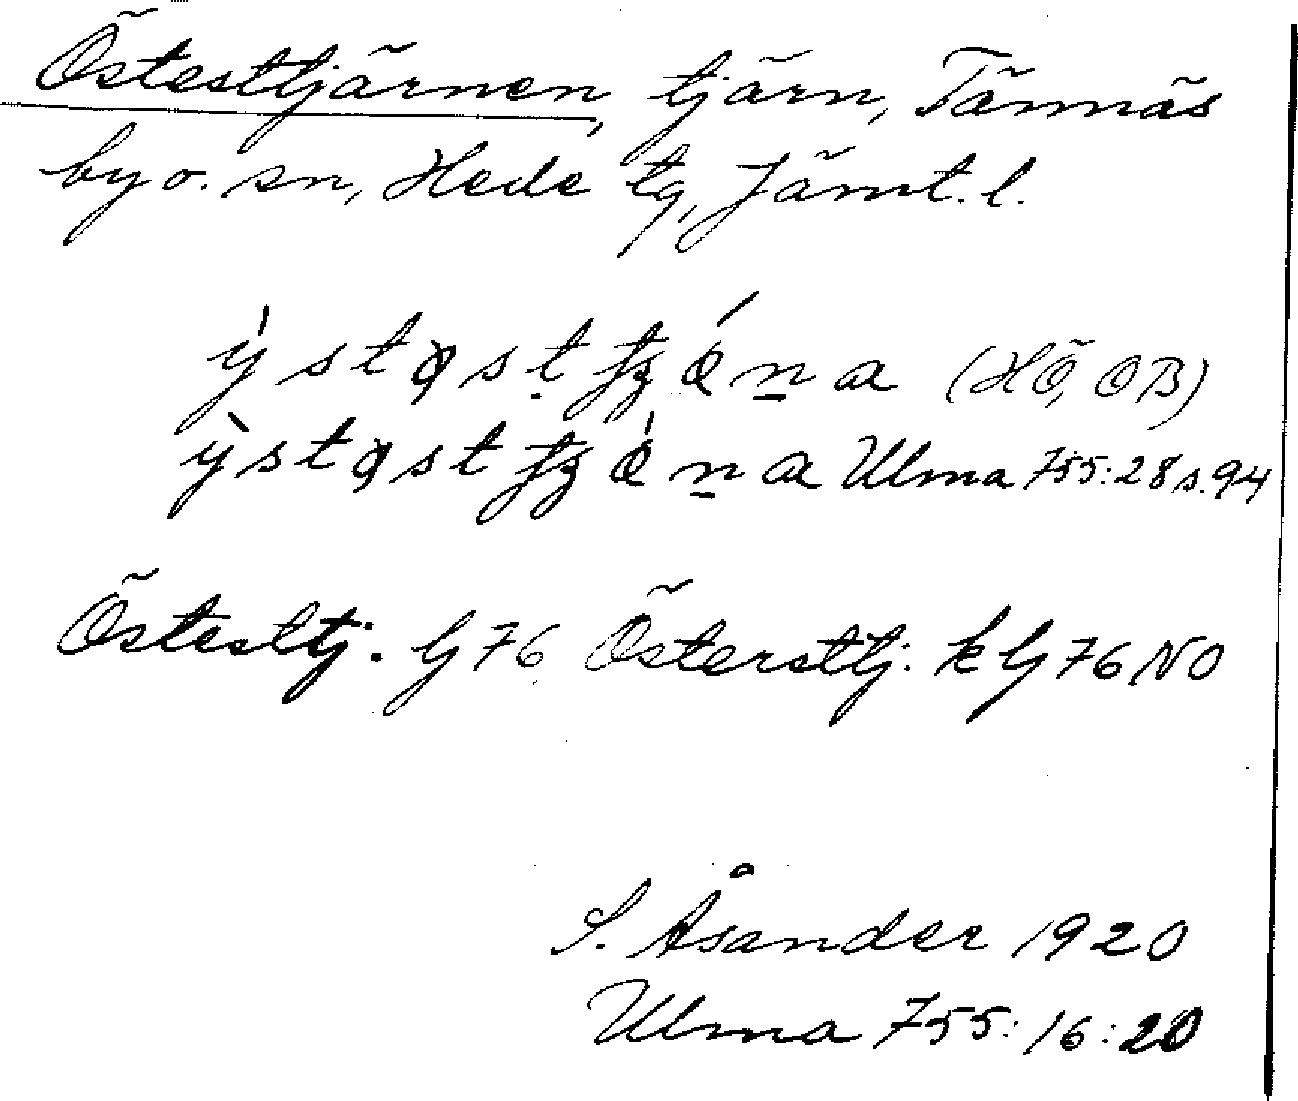 Östesttjärnen, tjärn, Tännäs
by o. sn, Hede tg, Jämt. l.
(HÖ, OB)
Ulma 755:28 s. 94
Östesttj. G 76 Östersttj. k G 76 NO
S. Åsander 1920
Ulma 755:16:20